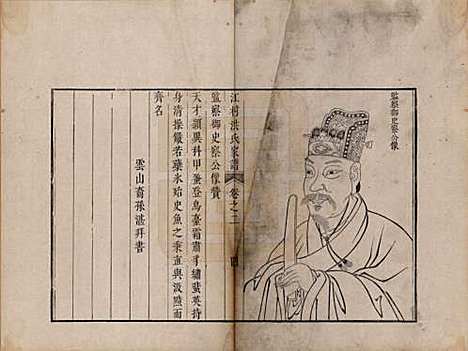 監察御史察公像
江村洪氏家譜 卷之二 四
監察御史察公像贊
天才穎異科甲蚤登烏臺霜肅豸繡蜚英持
身清操儼若蘗氷始史魚之秉直與汲黯而
齊名
雲山裔孫湛拜書